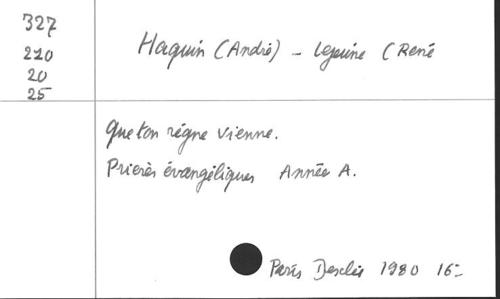 327
210
20
25
Haquin (André) - Lejeune (René
Que ton règne vienne.
Prières évangéliques Année A.
Paris Desclée 1980 16-